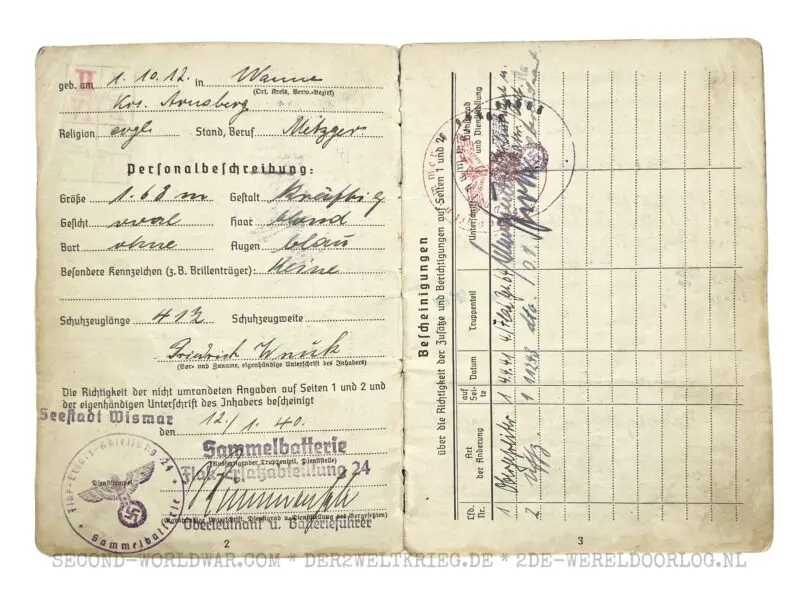 geb. am 1. 10. 12. in Wanne
(Ort, Kreis, Verw.-Bezirk)
Krs. Arnsberg
Religion evgl. Stand, Beruf Metzger
Personalbeschreibung:
Größe 1.63 m Gestalt kräftig
Gesicht oval Haar blond
Bart ohne Augen blau
Besondere Kennzeichen (z.B. Brillenträger): Keine
Schuhzeuglänge 41 Schuhzeugweite
Friedrich Wnuk
(Vor- und Zuname, eigenhändige Unterschrift des Inhabers)
Die Richtigkeit der nicht umrandeten Angaben auf Seiten 1 und 2 und
der eigenhändigen Unterschrift des Inhabers bescheinigt
Seestadt Wismar
den 12./1. 40.
Sammelbatterie
(Ausfertigender Truppenteil, Dienststelle)
Flak-Ersatzabteilung 24
Flak-Ersatz-Abteilung 24
Dienststempel
Sammelbatterie
(Eigenhändige Unterschrift, Dienstgrad u. Dienststellung des Vorgesetzten)
Oberleutnant u. Batterieführer
2
Bescheinigungen
über die Richtigkeit der Zusätze und Berichtigungen auf Seiten 1 und 2
Lfd. Nr.
Art der Änderung
auf Seite
Datum
Truppenteil
Unterschrift
und Dienststellung
1 1 4.4.41
2 Uffz. 1 dto.
3
SECOND-WORLDWAR.COM * DER2WELTKRIEG.DE * 2DE-WERELDOORLOG.NL